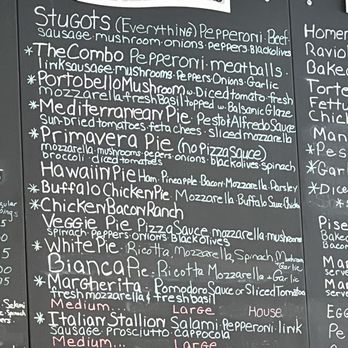 Stugots (Everything) Pepperoni. Beef
sausage mushroom onions peppers Blackolives
*The Combo Pepperoni meatballs.
link sausage mushrooms. Peppers Onions. Garlic
*Portobello Mushroom w/ Diced tomato. fresh
mozzarella. fresh Basil topped w/ Balsonic Glaze
*Mediterranean Pie. Pesto & Alfredo Sauce
Sun-Dried tomatoes. feta chees. sliced mozzarella
*Primavera Pie (no Pizza Sauce)
mozzarella. mushrooms. peppers onions. blackolives. spinach
broccoli. diced tomatoes
Hawaiin Pie Ham. Pineapple. Bacon. Mozzarella. Parsley
*Buffalo Chicken Pie. Mozzarella Buffalo Sauce Chicken
*Chicken Bacon Ranch
Veggie Pie Pizza Sauce. mozzarella. mushrooms
spinach peppers. Onions Black Olives
*White Pie. Ricotta, Mozzarella, Spinach, Mushroom
Garlic
Bianca Pie. Ricotta Mozzarella + Garlic
*Margherita. Pomodoro Sauce or Sliced Tomatoes
fresh mozzarella & fresh basil
Medium... Large House
*Italian Stallion Salami. Pepperoni. link
Sausage. Prosciutto Cappocola
Medium... Large
Homem
Raviol
Baked
Torte
Fettu
Chick
Man
*Pes
*Gar
*Dice
Pise
Baked
Mar
serve
Mar
serve
Egg
Pe